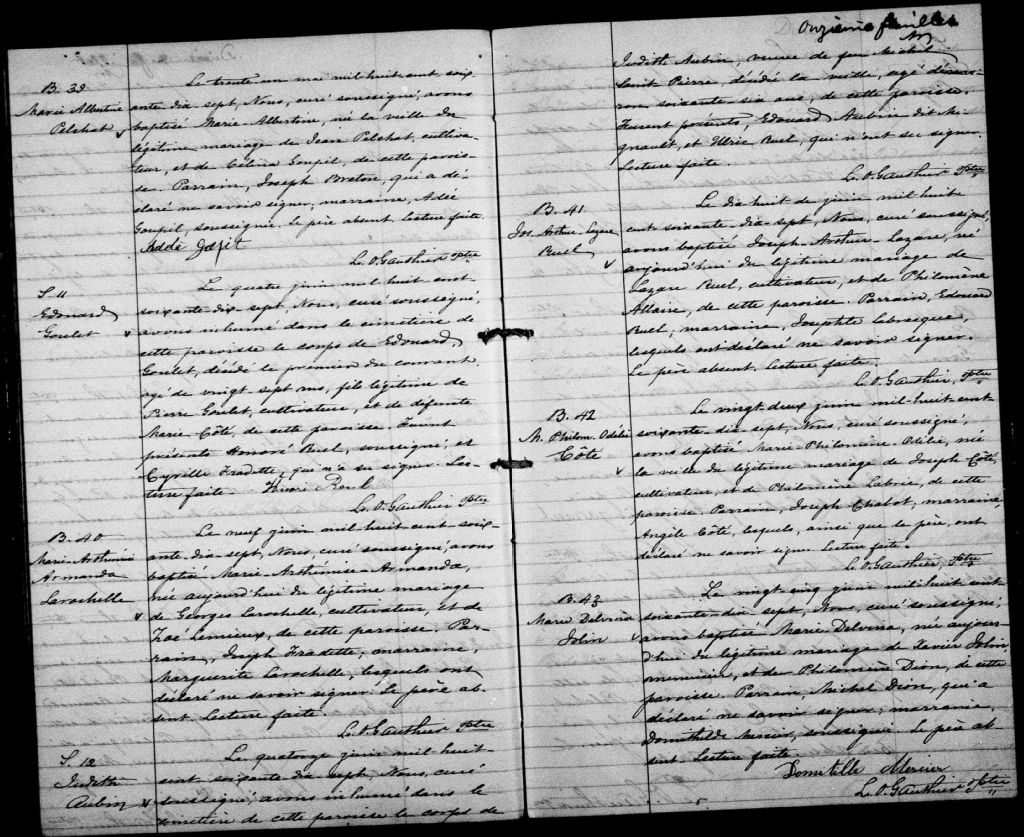 B. 39
Marie Albertine
Pelchat
Le trente-un mai mil huit-cent soix-
ante-dix-sept, Nous, curé soussigné, avons
baptisé Marie-Albertine, né la veille du
légitime mariage de Jean Pelchat, cultiva-
teur, et de Célina Goupil, de cette parois-
se. Parrain, Joseph Breton, qui a dé-
claré ne savoir signer, marraine, Adée
Goupil, soussignée. Le père absent. Lecture faite.
L. O. Gauthier Ptre
S. 11
Edouard
Goulet
Le quatre juin mil huit cent
soixante-dix-sept, Nous, curé soussigné,
avons inhumé dans le cimetière de
cette paroisse le corps de Edouard
Goulet, décédé le premier du courant,
agé de vingt sept ans, fils légitime de
Pierre Goulet, cultivateur, et de défunte
Marie Côté, de cette paroisse. Furent
présents Honoré Ruel, soussigné, et
Cyrille Fradette, qui n'a su signer. Lec-
ture faite.
L. O. Gauthier Ptre
B. 40
Marie-Arthémise
Armanda
Larochelle
Le neuf juin mil huit cent soix-
ante-dix-sept, Nous, curé soussigné, avons
baptisé Marie-Arthémise-Armanda,
née aujourd'hui du légitime mariage
de Georges Larochelle, cultivateur, et de
Zoé Lemieux, de cette paroisse. Par-
rain, Joseph Fradette, marraine,
Marguerite Larochelle, lesquels ont
déclaré ne savoir signer. Le père ab-
sent. Lecture faite.
L. O. Gauthier Ptre
S. 12
Judith
Aubin
Le quatorze juin mil huit-
cent soixante-dix sept, Nous, curé
soussigné avons inhumé dans le
cimetière de cette paroisse le corps de
Onzième feuillet
Judith Aubin, veuve de feu Michel
Saint Pierre, décédé la veille, agé d'envi-
ron soixante-six ans, de cette paroisse.
Furent présents, Edouard Aubin dit Mi-
gnault, et Ulric Ruel, qui n'ont su signer.
Lecture faite.
L. O. Gauthier Ptre
B. 41
Jos. Arthur-Lazare
Ruel
Le dix huit de juin mil huit
cent soixante-dix-sept, Nous, curé soussigné,
avons baptisé Joseph-Arthur-Lazare, né
aujourd'hui du légitime mariage de
Lazare Ruel, cultivateur, et de Philomène
Allaire, de cette paroisse. Parrain, Edouard
Ruel, marraine, Josephte Lebrecque,
lesquels ont déclaré ne savoir signer.
Le père absent. Lecture faite.
L. O. Gauthier, Ptre
B. 42
M. Philom. Odélie
Côté
Le vingt-deux juin mil-huit-cent
soixante-dix-sept, Nous, curé soussigné,
avons baptisé Marie-Philomène Odélie, née
la veille du légitime mariage de Joseph Côté,
cultivateur, et de Philomène Labrie, de cette
paroisse. Parrain, Joseph Chabot, marraine,
Angèle Côté, lesquels, ainsi que le père, ont
déclaré ne savoir signer. Lecture faite.
L. O. Gauthier, Ptre
B. 43
Marie Delvina
Jolin
Le vingt-cinq juin mil-huit cent
soixante-dix sept, Nous, curé soussigné,
avons baptisé Marie Delvina, née aujour-
d'hui du légitime mariage de Xavier Jolin,
menuisier, et de Philomène Dion, de cette
paroisse. Parrain, Michel Dion, qui a
déclaré ne savoir signer; marraine,
Domithilde Mercier, soussignée. Le père ab-
sent. Lecture faite.
Domitille Mercier
L. O. Gauthier Ptre